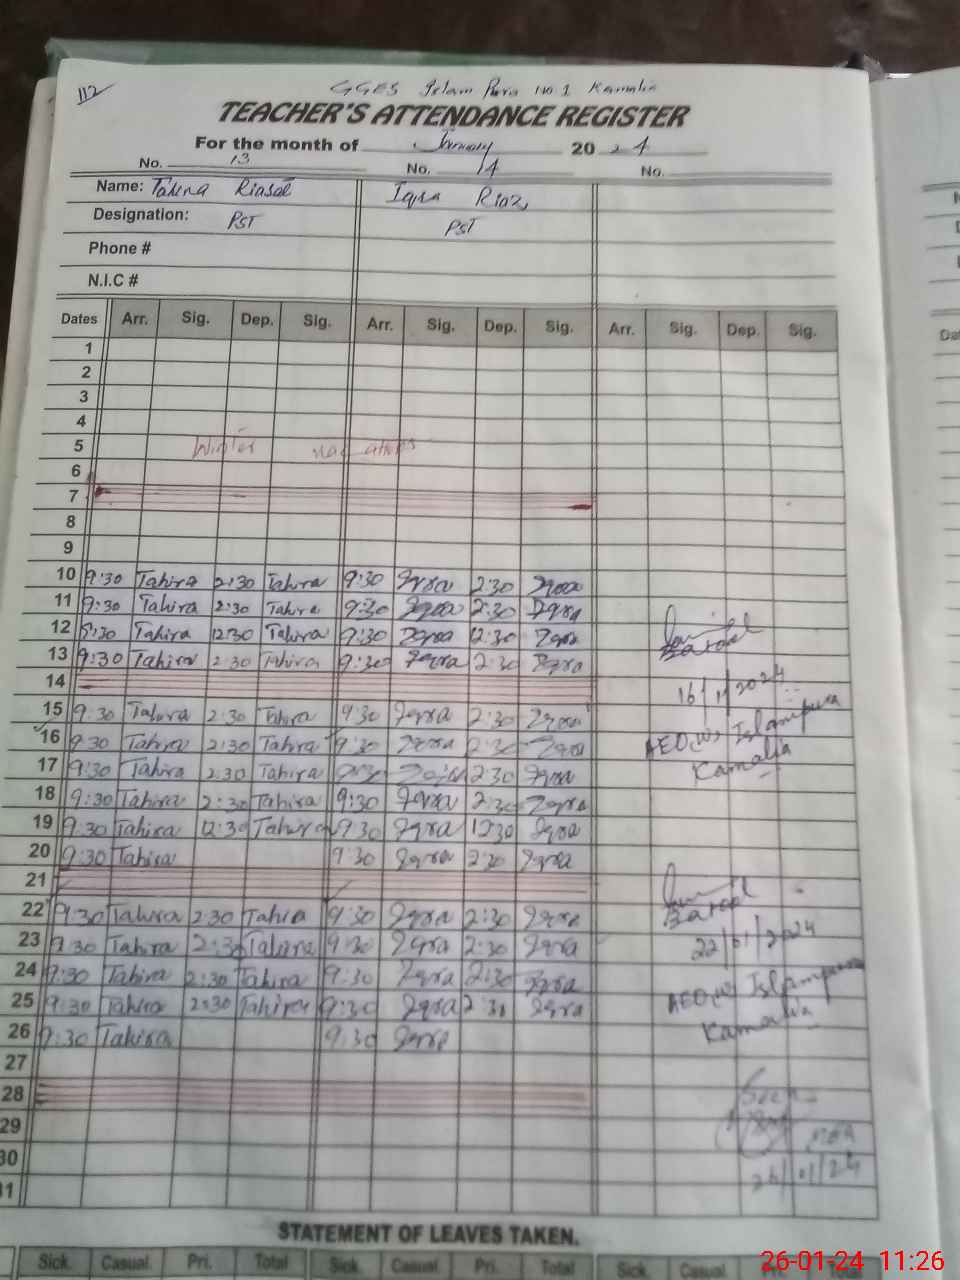 112
GGES Islam Pura No 1 Kamalia
TEACHER'S ATTENDANCE REGISTER
For the month of January 2024
No. 13 No. 14 No.
Name: Tahira Riasat Iqra Riaz
Designation: PST PST
Phone #
N.I.C #
Dates Arr. Sig. Dep. Sig. Arr. Sig. Dep. Sig. Arr. Sig. Dep. Sig.
1
2
3
4
5 Winter vacations
6
7
8
9
10 9:30 Tahira 2:30 Tahira 9:30 Iqra 2:30 Iqra
11 9:30 Tahira 2:30 Tahira 9:30 Iqra 2:30 Iqra
12 9:30 Tahira 12:30 Tahira 9:30 Iqra 12:30 Iqra
13 9:30 Tahira 2:30 Tahira 9:30 Iqra 2:30 Iqra
14 16/1/2024
15 9:30 Tahira 2:30 Tahira 9:30 Iqra 2:30 Iqra
AEO(W) Islampura
16 9:30 Tahira 2:30 Tahira 9:30 Iqra 2:30 Iqra
Kamalia
17 9:30 Tahira 2:30 Tahira 9:30 Iqra 2:30 Iqra
18 9:30 Tahira 2:30 Tahira 9:30 Iqra 2:30 Iqra
19 9:30 Tahira 12:30 Tahira 9:30 Iqra 12:30 Iqra
20 9:30 Tahira 9:30 Iqra 2:30 Iqra
21
22 9:30 Tahira 2:30 Tahira 9:30 Iqra 2:30 Iqra
23 9:30 Tahira 2:30 Tahira 9:30 Iqra 2:30 Iqra 22/01/2024
24 9:30 Tahira 2:30 Tahira 9:30 Iqra 2:30 Iqra
AEO(W) Islampura
25 9:30 Tahira 2:30 Tahira 9:30 Iqra 2:30 Iqra
Kamalia
26 9:30 Tahira 9:30 Iqra
27
28 Seen
29 MEA
30 26/01/24
31
STATEMENT OF LEAVES TAKEN.
Sick. Casual. Pri. Total Sick. Casual. Pri. Total Sick. Casual. Pri. Total
26-01-24 11:26